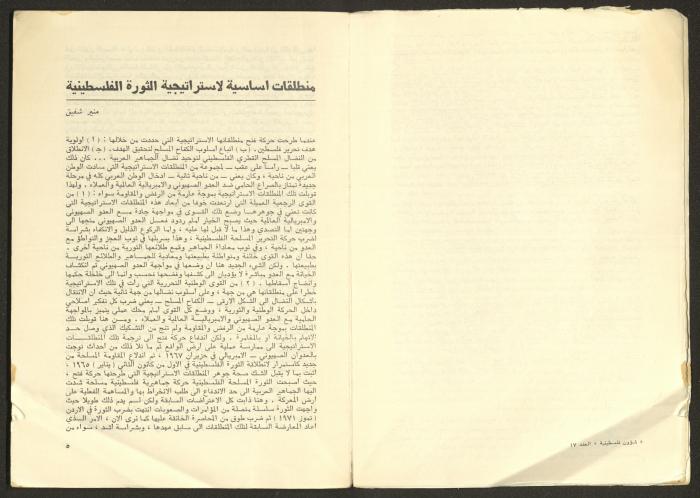 منطلقات اساسية لاستراتيجية الثورة الفلسطينية
منير شفيق
عندما طرحت حركة فتح منطلقاتها الاستراتيجية التي حددت من خلالها : (أ) اولوية
هدف تحرير فلسطين . (ب) اتباع اسلوب الكفاح المسلح لتحقيق الهدف . (ج) الانطلاق
من النضال المسلح القطري الفلسطيني لتوحيد نضال الجماهير العربية ... كان ذلك
يعني قلبا ـ رأسا على عقب ـ لمجموعة من المنطلقات الاستراتيجية التي سادت الوطن
العربي من ناحية ، وكان يعني ـ من ناحية ثانية ـ ادخال الوطن العربي كله في مرحلة
جديدة تمتاز بالصراع الحامي ضد العدو الصهيوني والامبريالية العالمية والعملاء . ولهذا
قوبلت تلك المنطلقات الاستراتيجية بموجة عارمة من الرفض والمقاومة بسواء : (١) من
القوى الرجعية العميلة التي ارتعدت خوفا من أبعاد هذه المنطلقات الاستراتيجية التي
كانت تعني في جوهرها وضع تلك القوى في مواجهة جادة مع العدو الصهيوني
والامبريالية العالمية حيث يصبح الخيار أمام ردود فعل العدو الصهيوني متجها الى
وجهتين اما التصدي وهذا ما لا قبل لها عليه ، واما الركوع الذليل والانكفاء بشراسة
لضرب حركة التحرير المسلحة الفلسطينية ، وهذا يسربلها في ثوب العجز والتواطؤ مع
العدو من ناحية ، وفي ثوب معاداة الجماهير وقمع طلائعها الثورية من ناحية أخرى .
حقا أن هذه القوى خائنة ومتواطئة بطبيعتها ومعادية للجماهير والطلائع الثورية
بطبيعتها . ولكن الشيء الجديد هنا ان وضعها في مواجهة العدو الصهيوني ثم انكشاف
الخيانة مع العدو مباشرة لا يؤديان الى كشفها وفضحها فحسب وانما الى خلخلة حكمها
وانضاج اسقاطها . (٢) من القوى الوطنية التحررية التي رأت في تلك الاستراتيجية
خطرا على منطلقاتها هي من جهة ، وعلى أسلوب نضالها من جهة ثانية حيث ان الانتقال
بأشكال النضال الى الشكل الارقى ـ الكفاح المسلح ـ يعني ضرب كل تفكير اصلاحي
داخل الحركة الوطنية والثورية ، ووضع كل القوى أمام محك عملي يتميز بالمواجهة
الحامية مع العدو الصهيوني والامبريالية العالمية والعملاء . ومن هنا قوبلت تلك
المنطلقات بموجة عارمة من الرفض والمقاومة ولم تنج من التشكيك الذي وصل حد
الاتهام بالخيانة او بالمغامرة . ولكن اندفاع حركة فتح الى ترجمة تلك المنطلقات
الاستراتيجية الى ممارسة عملية على أرض الواقع ثم ما تلا ذلك من أحداث توجت
بالعدوان الصهيوني ـ الامبريالي في حزيران ١٩٦٧ ، ثم اندلاع المقاومة المسلحة من
جديد كاستمرار لانطلاقة الثورة الفلسطينية في الاول من كانون الثاني ( يناير ) ١٩٦٥ ،
أثبت بما لا يقبل الشك صحة جوهر المنطلقات الاستراتيجية التي طرحتها حركة فتح ،
حيث اصبحت الثورة المسلحة الفلسطينية حركة جماهيرية فلسطينية مسلحة شدت
اليها الجماهير العربية الى حد الاندفاع الى طلب الانخراط بها والمساهمة الفعلية على
ارض المعركة . وهنا ذابت كل الاعتراضات السابقة ولكن اسم يدم ذلك طويلا حيث
واجهت الثورة سلسلة متصلة من المؤامرات والصعوبات انتهت بضرب الثورة في الاردن
( تموز ١٩٧١ ) ثم ضرب طوق من المحاصرة الخانقة عليها كما نرى الان ، الامر الذي
أعاد المعارضة السابقة لتلك المنطلقات الى سابق عهدها ، وبشراسة أشد ، سواء من
٥
« شؤون فلسطينية » العدد ١٧